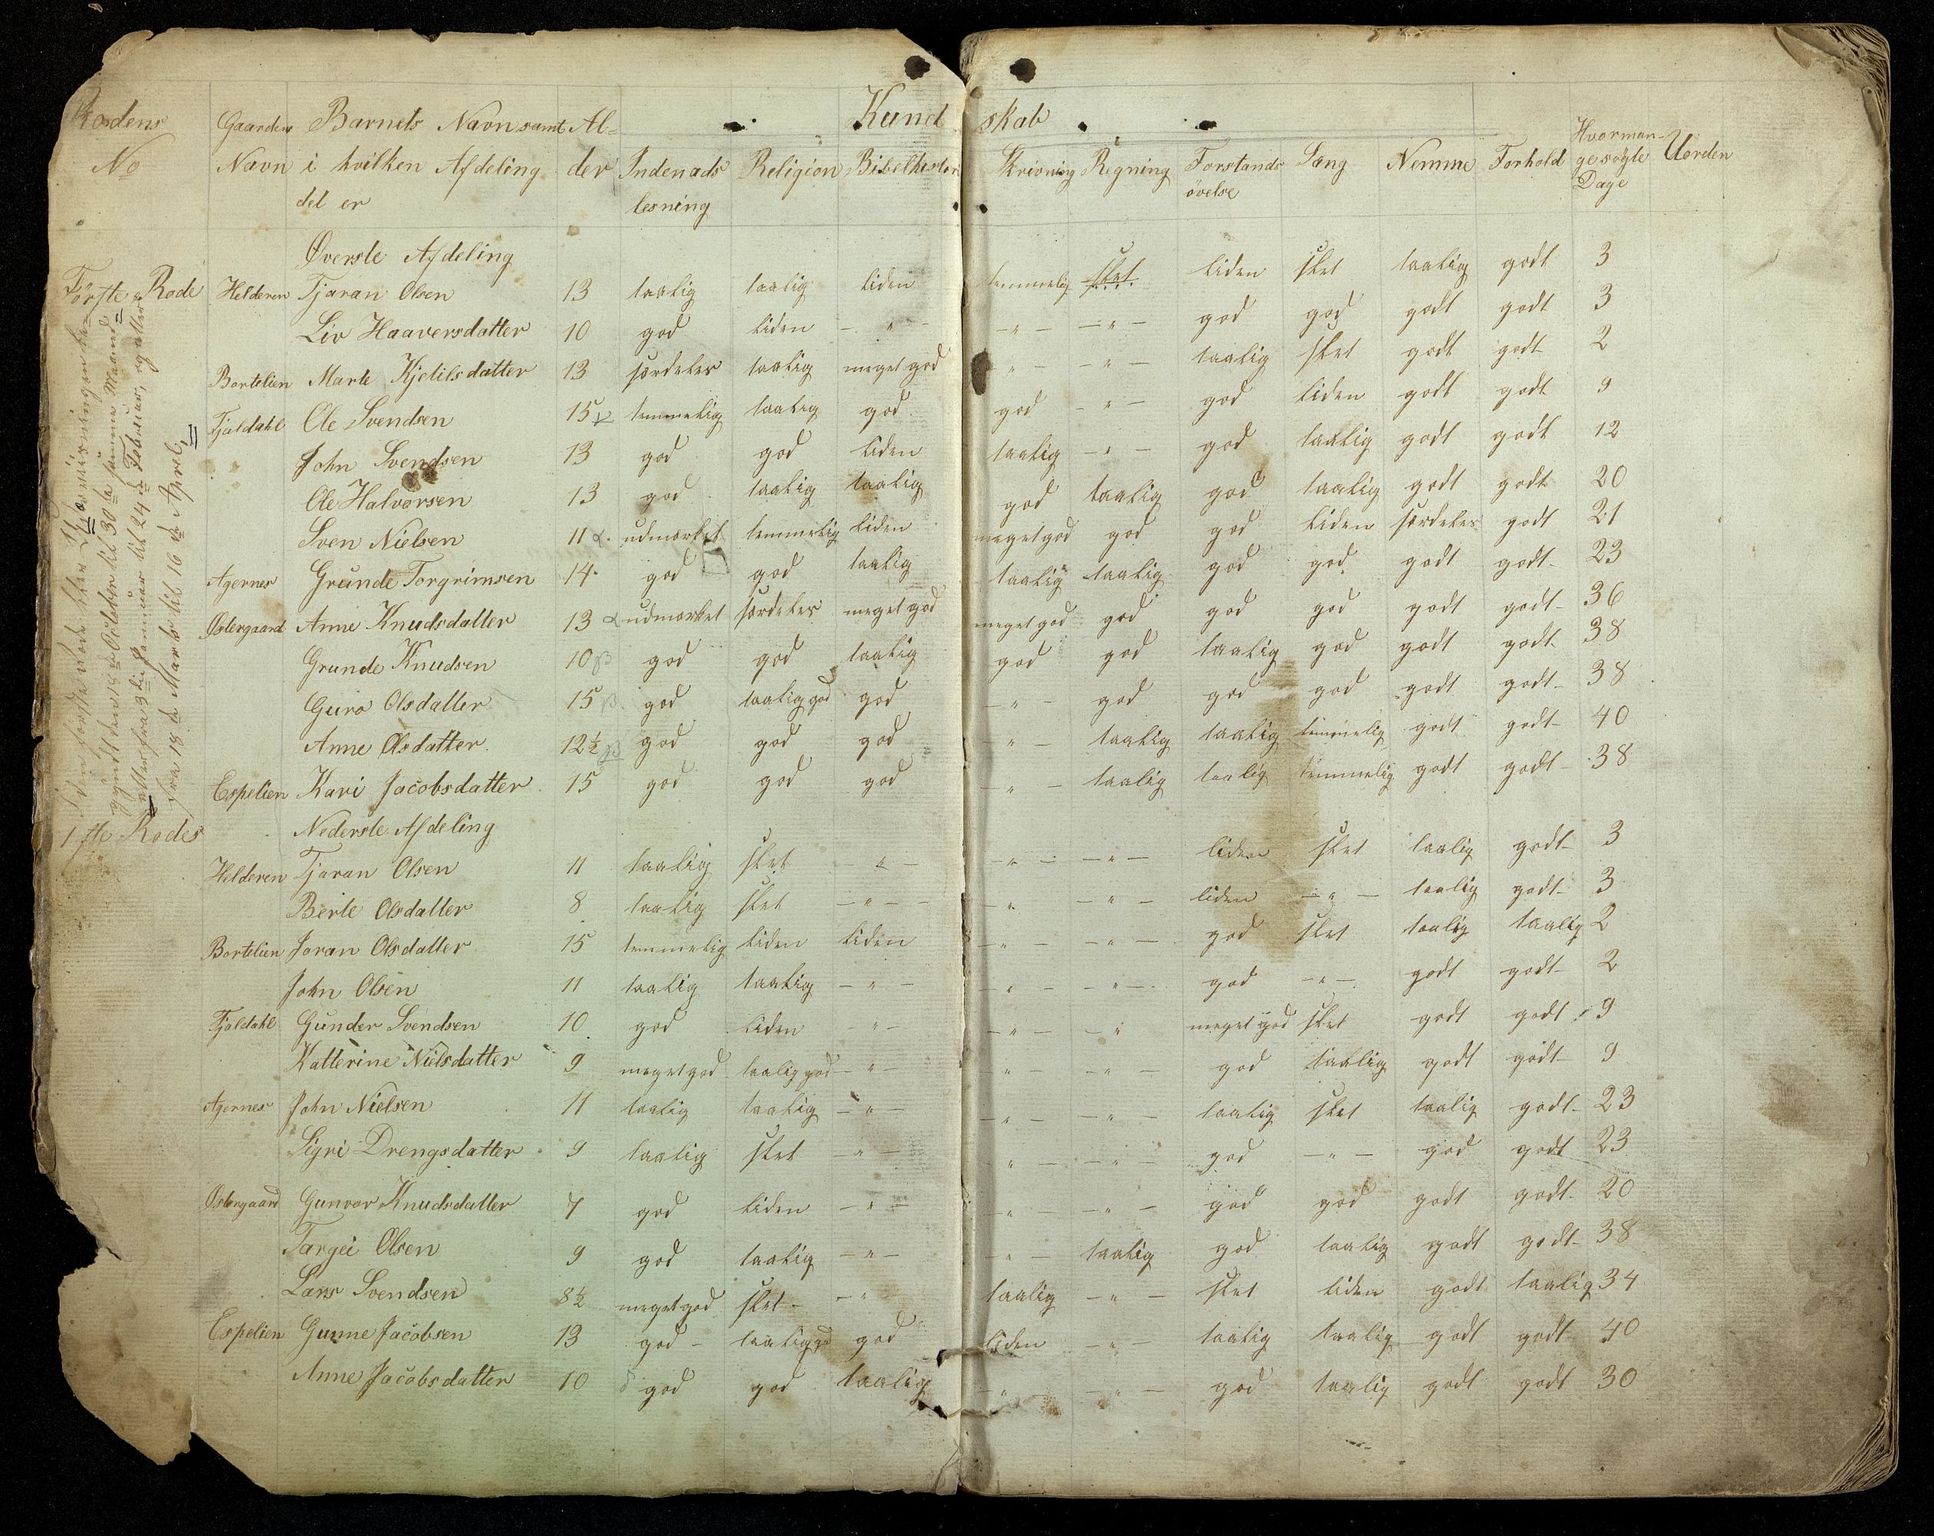 Rodens No Gaardens Navn Barnets Navn samt i hvilken Afdeling det er Alder Kundskab Indenads lesning Religion Bibelhistor Skrivning Regning Forstands øvelse Sang Nemme Forhold Hvormange søgte Dage Uorden
Øverste Afdeling
Første Rode Helderen Tjaran Olsen 13 taalig taalig liden temmelig slet liden slet taalig godt 3
Liv Haaversdatter 10 god liden – " – – " – – " – god god godt godt 3
Bortelien Marte Kjetilsdatter 13 særdeles taalig meget god – " – – " – taalig slet godt godt 2
Fjaldahl Ole Svendsen 15 temmelig taalig god god – " – god liden godt godt 9
John Svendsen 13 god god liden taalig – " – god taalig godt godt 12
Ole Halvorsen 13 god taalig taalig god taalig god taalig godt godt 20
Sven Nielsen 11 α udmærket temmelig liden meget god god god liden særdeles godt 21
Agernes Grunde Torgrimsen 14 god god taalig taalig taalig god god godt godt 23
Østergaard Anne Knudsdatter 13 α udmærket særdeles meget god meget god god god god godt godt 36
Grunde Knudsen 10 β god god taalig god god taalig god godt godt 38
Guro Olsdatter 15 β god taalig god god – " – god god god godt godt 38
Anne Olsdatter 12½ β god god god – " – taalig taalig temmelig godt godt 40
Espelien Kari Jacobsdatter 15 god god god – " – taalig taalig temmelig godt godt 38
1ste Rodes Nederste Afdeling
Helderen Tjaran Olsen 11 taalig slet " – – " – – " – liden slet taalig godt 3
Berte Olsdatter 8 taalig slet – " – – " – " – liden – " – taalig godt 3
Bortelien Joran Olsdatter 15 temmelig liden liden – " – – " – god slet taalig taalig 2
John Olsen 11 taalig taalig – " – – " – – " – god – " – godt godt 2
Fjaldahl Gunder Svendsen 10 god liden " – – " – – " meget god slet godt godt 9
Katterine Nielsdatter 9 meget god taalig god – " – – " – – " – god taalig godt godt 9
Agernes John Nielsen 11 taalig taalig – " – – " – – " – taalig slet taalig godt 23
Sigri Drengsdatter 9 taalig slet – " – – " – – " – god – " – god godt 23
Østergaard Gunvor Knudsdatter 7 god liden – " – – " – – " – god god godt godt 20
Targei Olsen 9 god taalig – " – – " – taalig god taalig godt godt 38
Lars Svendsen 8½ meget god slet – – " taalig – " – slet liden godt taalig 34
Espelien Gunne Jacobsen 13 god – taalig god god liden – " – taalig taalig godt godt 40
Anne Jacobsdatter 10 god god taalig – " – " – god taalig godt godt 30
gyndt den 18de October til 30te samme Maaned
efter fra 3die Januar til 24de Februar, og atter
fra 18de Marts til 16de April,